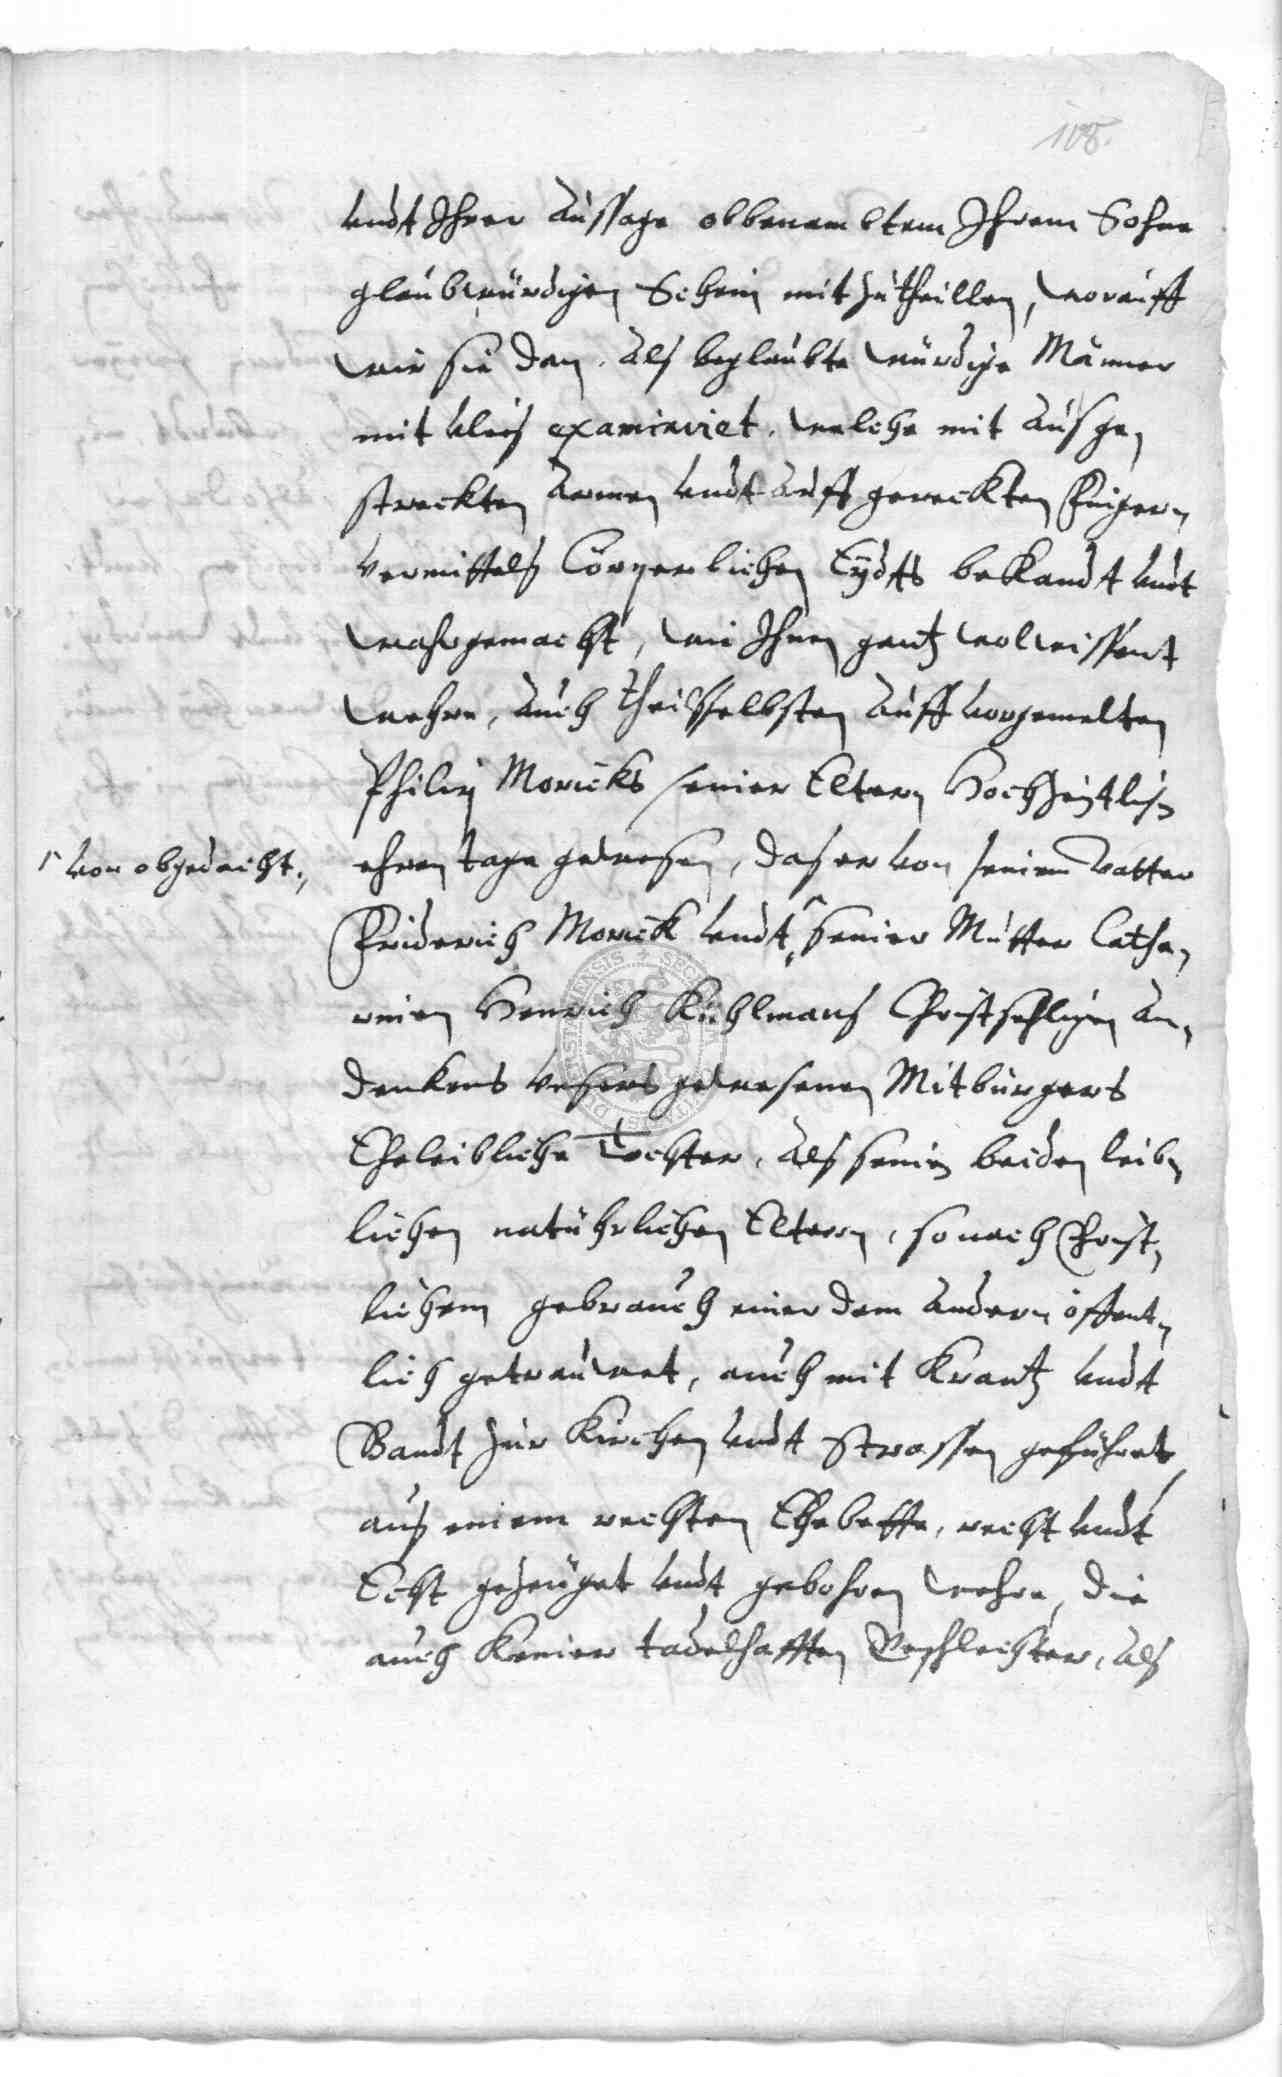 108.
undt Ihrer Aussage obbenambtem Ihrem Sohne
glaubwürdigen Schein mitzutheillen, worauff
wir sie dan, als beglaubte würdige Männer
mit vleis examiniret, welche mit ausge,
streckten Armen undt auffgereckten Fingern,
vermittels Cörperlichen Eydts bekandt undt
wahrgemacht, wie Ihnen gantz wol wissent
wehre, auch theils selbsten auff vorgemelten
Philip Moricks seiner Eltern Hochzeitlich
ehren tage gewesen, das er von seinem Vatter
Friderich Morick undt seiner Mutter Catha,
von obgedacht.,
rinen Henrich Kühlmans Christsehligen an,
denkens unsers gewesenen Mitbürgers
Eheleibliche Tochter, als seinen beiden leib,
lichen natührlichen Eltern, so nach Christ,
lichem gebrauch einer dem andern öffent,
lich getrauwet, auch mit Krantz undt
Bandt zur Kirchen undt Strassen geführet,
aus einem rechten Ehebette, recht undt
Echt gezeuget undt gebohren wehre, die
auch keiner tadelhafften Geschlechter, als